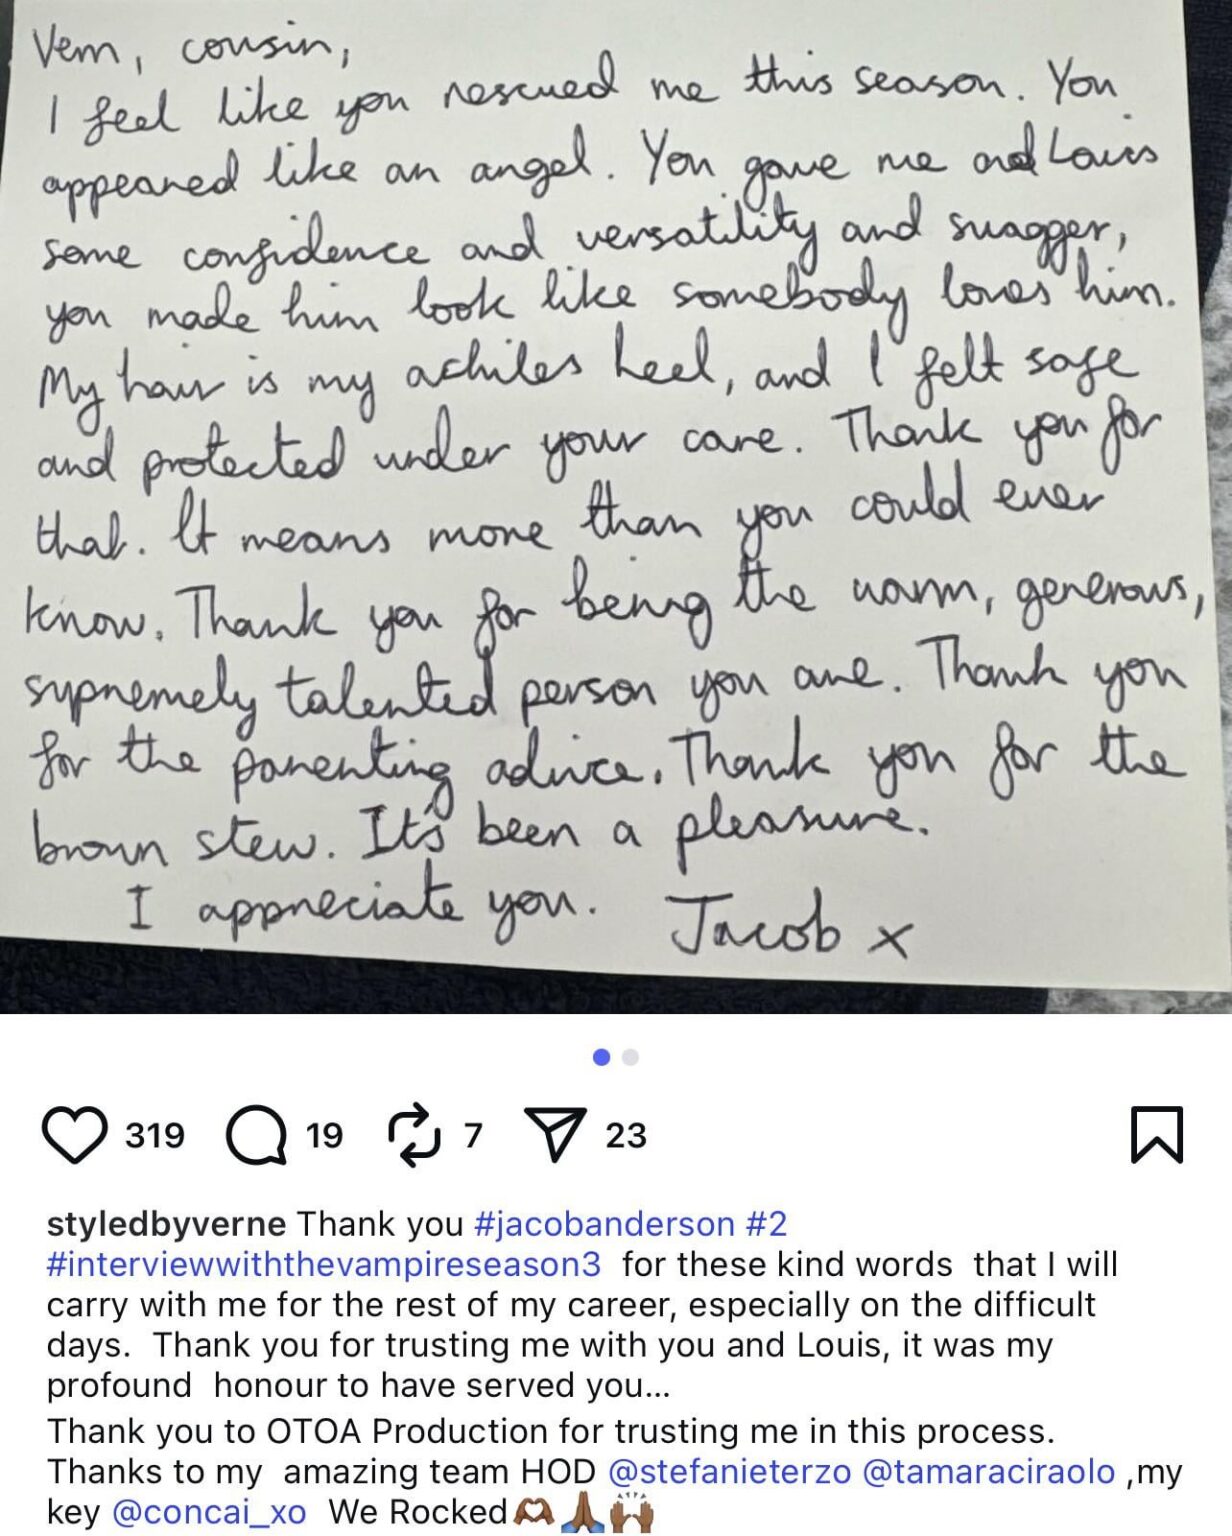 Vern, cousin,
I feel like you rescued me this season. You
appeared like an angel. You gave me and Louis
some confidence and versatility and swagger,
you made him look like somebody loves him.
My hair is my achiles heel, and I felt safe
and protected under your care. Thank you for
that. It means more than you could ever
know. Thank you for being the warm, generous,
supremely talented person you are. Thank you
for the parenting advice. Thank you for the
brown stew. It's been a pleasure.
I appreciate you. Jacob x
319 19 7 23
styledbyverne Thank you #jacobanderson #2
#interviewwiththevampireseason3 for these kind words that I will
carry with me for the rest of my career, especially on the difficult
days. Thank you for trusting me with you and Louis, it was my
profound honour to have served you...
Thank you to OTOA Production for trusting me in this process.
Thanks to my amazing team HOD @stefanieterzo @tamaraciraolo ,my
key @concai_xo We Rocked🫶🏾🙏🏾🙌🏾